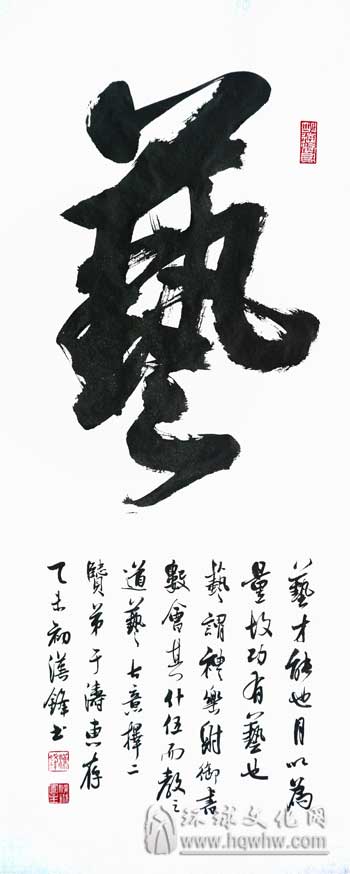 藝
藝才能也月以為
量故功有藝也
藝謂禮樂射御書
數會其什伍而教之
道藝古意擇二
賢弟于濤惠存
乙未初漢鋒书
环球文化网
www.hqwhw.com